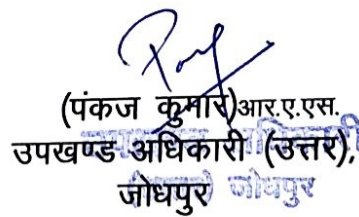 (पंकज कुमार)आर.ए.एस.
उपखण्ड अधिकारी (उत्तर),
जोधपुर
जोधपुर